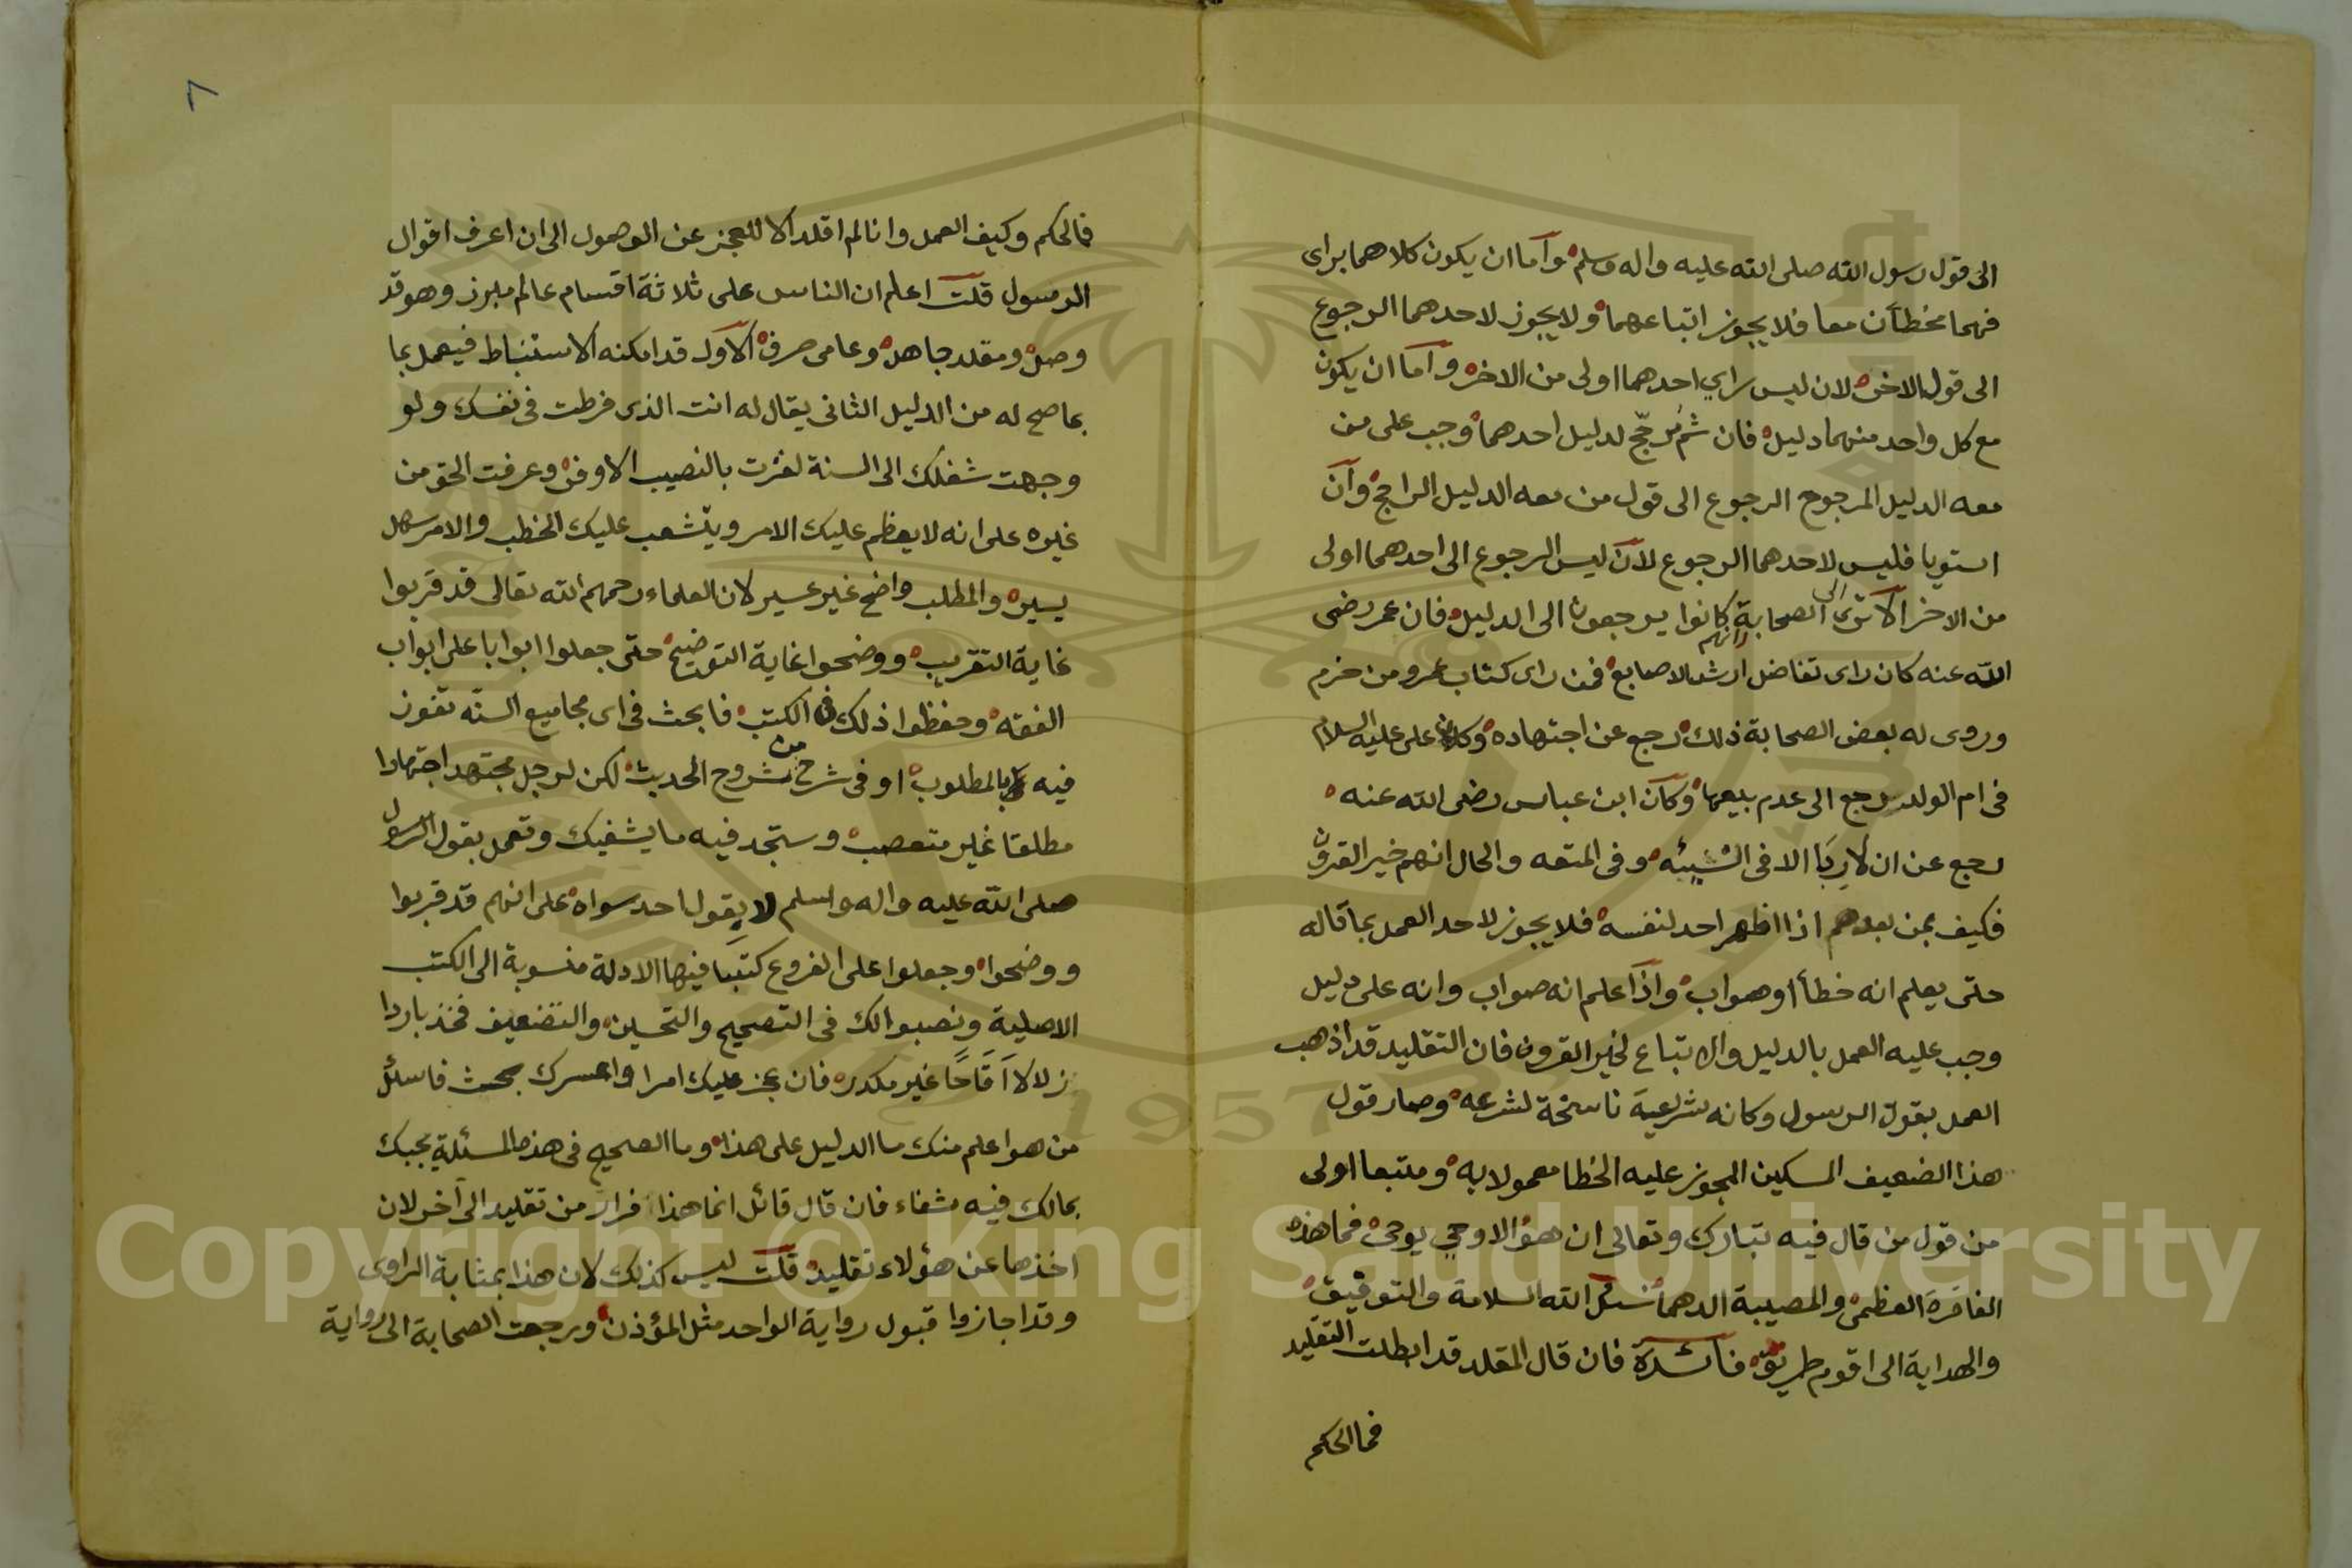 الى قول رسول الله صلى الله عليه واله وسلم واما ان يكون كلاهما براى
فهما مخطأن معا فلا يجوز اتباعهما ولا يجوز لاحدهما الرجوع
الى قول الاخر لان ليس راي احدهما اولى من الاخر واما ان يكون
مع كل واحد منهما دليل فان ثم مُرجّح لدليل احدهما وجب على من
معه الدليل المرجوح الرجوع الى قول من معه الدليل الراجح وان
استويا فليس لاحدهما الرجوع لان ليس الرجوع الى احدهما اولى
من الاخر الا ترى الى الصحابة انهم كانوا يرجعون الى الدليل فان عمر رضى
الله عنه كان راى تفاضل ارش الاصابع فمن راى كتاب عمرو من حزم
وروى له بعض الصحابة ذلك رجع عن اجتهاده وكان على عليه السلام
فى ام الولد رجع الى عدم بيعها وكان ابن عباس رضى الله عنه
رجع عن ان لا رِبَا الا فى النسيئه وفى المتعه والحال انهم خير القرون
فكيف بمن بعدهم اذا اظهر احد لنفسه فلا يجوز لاحد العمل بما قاله
حتى يعلم انه خطأ او صواب واذا علم انه صواب وانه على دليل
وجب عليه العمل بالدليل والاتباع لخير القرون فان التقليد قد اذهب
العمل بقول الرسول وكانه شريعة ناسخة لشرعه وصار قول
هذا الضعيف المسكين المجوز عليه الخطا معمولا به ومتبعا اولى
من قول من قال فيه تبارك وتعالى ان هو الا وحي يوحى فما هذه
الفاقرة العظمى والمصيبة الدهما نسئل الله السلامة والتوفيق
والهداية الى اقوم طريق فائدة فان قال المقلد قد ابطلت التقليد
فما الحكم
٨
فما الحكم وكيف العمل وانا لم اقلد الا للعجز عن الوصول الى ان اعرف اقوال
الرسول قلت اعلم ان الناس على ثلاثة اقسام عالم مبرز وهو قد
وصل ومقلد جاهل وعامى صرف الاول قد امكنه الاستنباط فيعمل بما
بما صح له من الدليل الثانى يقال له انت الذى فرطت فى نفسك ولو
وجهت شغلك الى السنة لفزت بالنصيب الاوفر وعرفت الحق من
غيره على انه لا يعظم عليك الامر ويتشعب عليك الخطب والامر سهل
يسير والمطلب واضح غير عسير لان العلماء رحمهم الله تعالى قد قربوا
غاية التقريب ووضحوا غاية التوضيح حتى جعلوا ابوابا على ابواب
الفقه وحفظوا ذلك فى الكتب فابحث فى اى مجاميع السنّه تفوز
فيه بالمطلوب او فى شرح من شروح الحديث لكن لرجل مجتهد اجتهادا
مطلقا غير متعصب وستجد فيه ما يشفيك وتعمل بقول الرسول
صلى الله عليه واله واسلم لا بقول احد سواه على انهم قد قربوا
ووضحوا وجعلوا على الفروع كتبا فيها الادلة منسوبة الى الكتب
الاصلية ونصبوا لك فى التصحيح والتحسين والتضعيف فخذ باردا
زلالا قَاحًا غير مكدر فان عجز عليك امرا واعسرك بحث فاسئل
من هو اعلم منك ما الدليل على هذا وما الصحيح فى هذه المسئلة يجبك
بما لك فيه شفاء فان قال قائل انما هذا فرار من تقليد الى آخر لان
اخذها عن هؤلاء تقليد قلت ليس كذلك لان هذا بمثابة الراوى
وقد اجازوا قبول رواية الواحد مثل المؤذن ورجعت الصحابة الى رواية
Copyright © King Saud University
1957